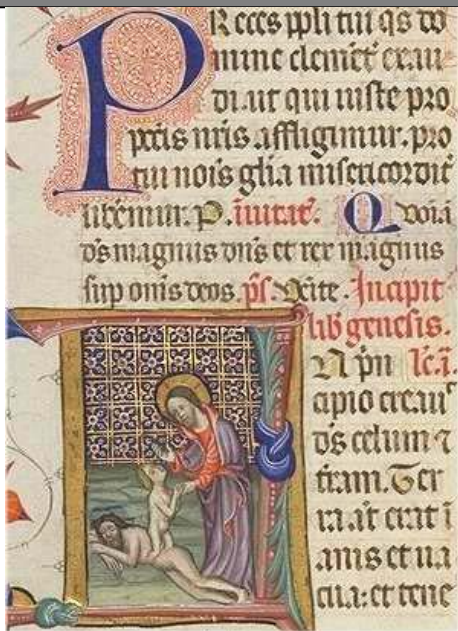 Preces ppli tui qs do
mine clemēt exau
di. ut qui iuste pro
pctis nris affligimur. pro
tui nois glia misericordit
libemur. P. iuitat. Quoiā
ds magnus dns et rex magnus
sup omis deos. ps. Uenite. Incipit
lib genesis.
IN pn lc. i.
cipio creauit
ds celum ⁊
tram. Ter
ra at erat ī
anis et ua
cua: et tene